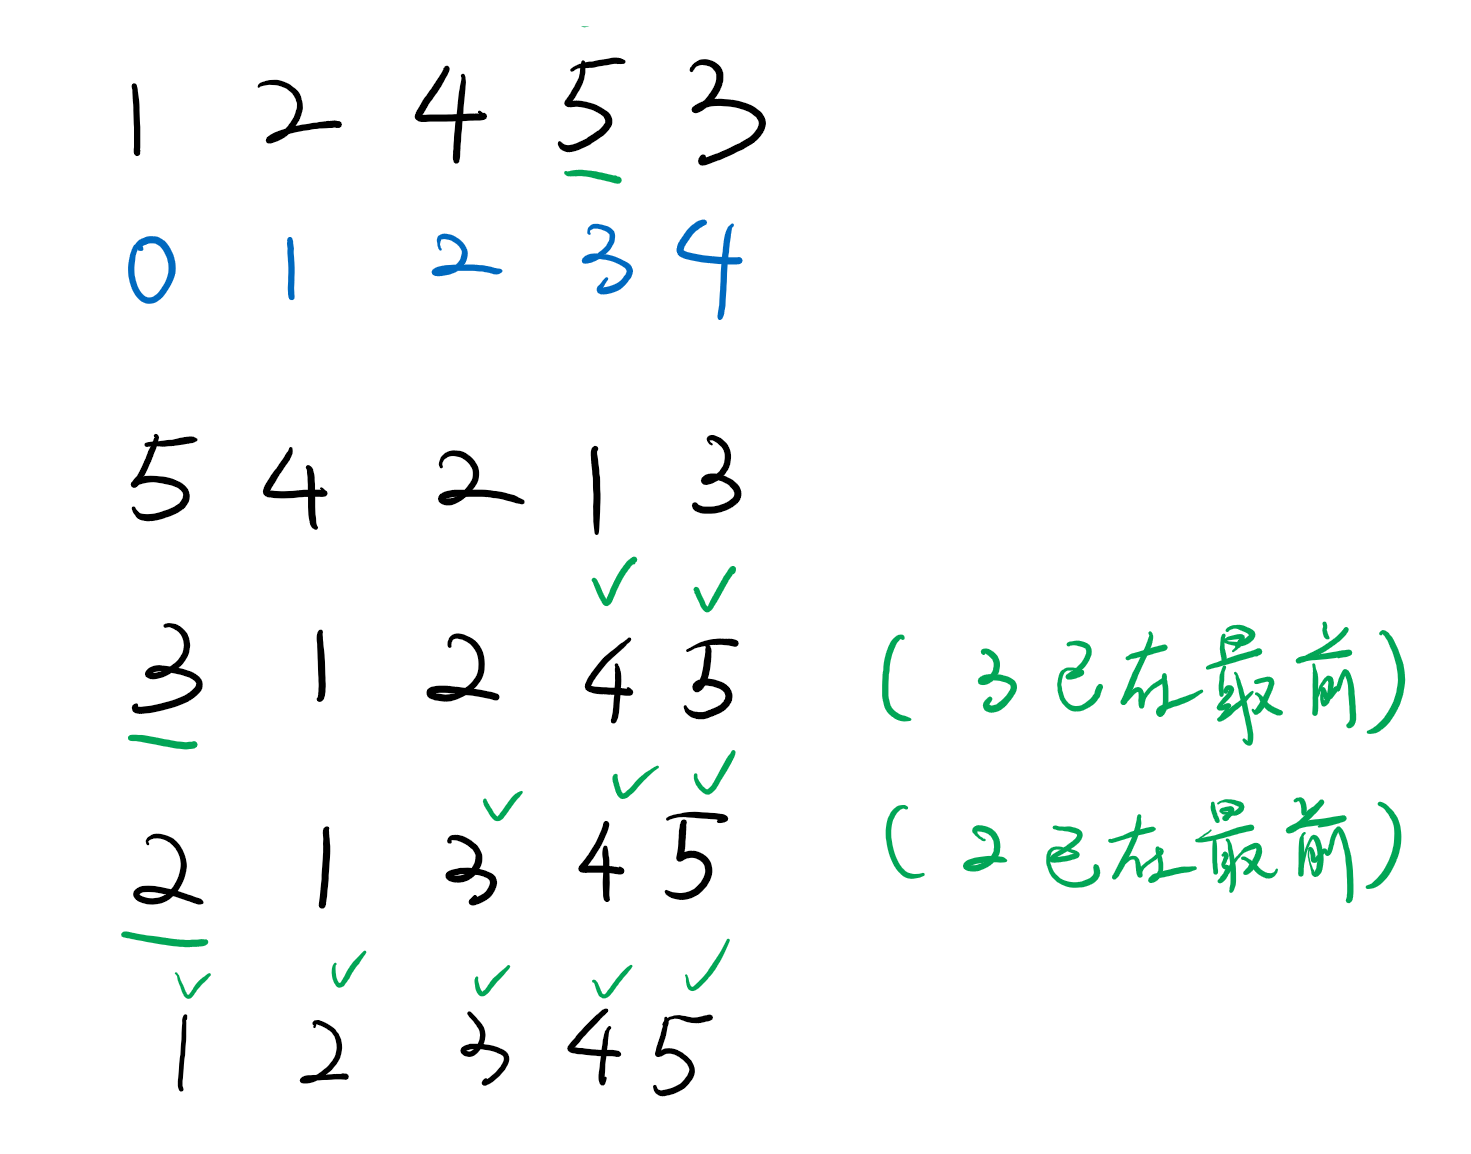 1 2 4 5 3
0 1 2 3 4
5 4 2 1 3
✓ ✓
3 1 2 4 5 (3已在最前)
✓ ✓ ✓
2 1 3 4 5 (2已在最前)
✓ ✓ ✓ ✓ ✓
1 2 3 4 5